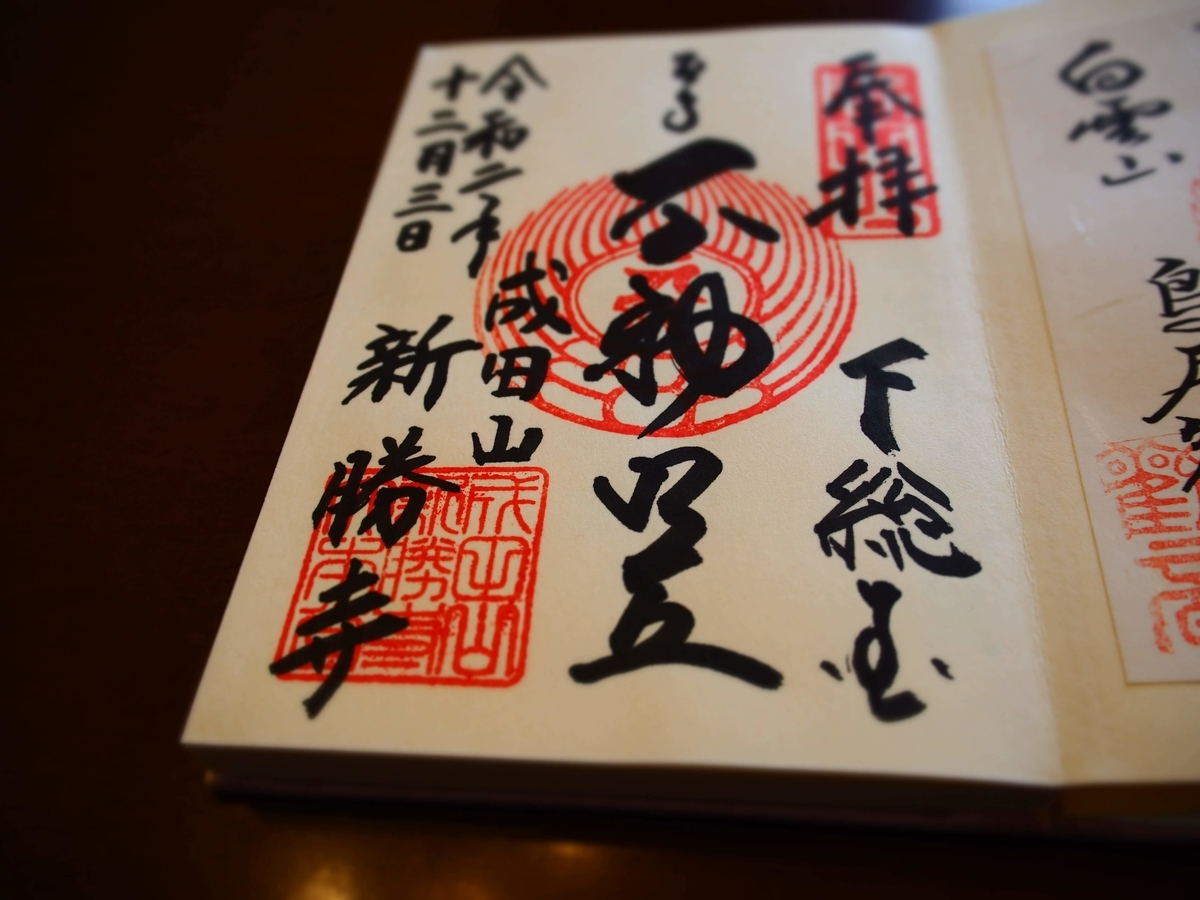 白雲山
鳥居
奉拝
下総国
不動明王
成田山
新勝寺
令和二年
十二月三日
成田山
新勝寺